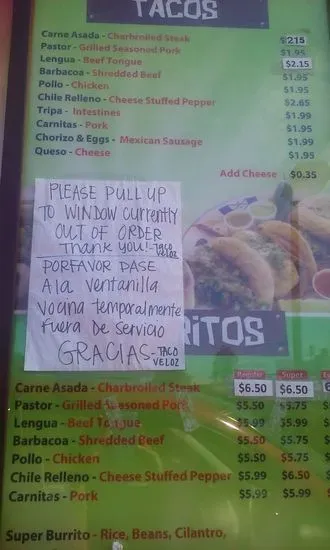 TACOS
Carne Asada - Charbroiled Steak $2.15
Pastor - Grilled Seasoned Pork $1.95
Lengua - Beef Tongue $2.15
Barbacoa - Shredded Beef $1.95
Pollo - Chicken $1.95
Chile Relleno - Cheese Stuffed Pepper $2.65
Tripa - Intestines $1.99
Carnitas - Pork $1.95
Chorizo & Eggs - Mexican Sausage $1.99
Queso - Cheese $1.95
Add Cheese $0.35
PLEASE PULL UP
TO WINDOW CURRENTLY
OUT OF ORDER
Thank you! - TACO VELOZ
PORFAVOR PASE
A la Ventanilla
Vocina temporalmente
Fuera De Servicio
GRACIAS - TACO VELOZ
RITOS
Regular Super
Carne Asada - Charbroiled Steak $6.50 $6.50
Pastor - Grilled Seasoned Pork $5.50 $5.75
Lengua - Beef Tongue $5.99 $5.99
Barbacoa - Shredded Beef $5.50 $5.75
Pollo - Chicken $5.50 $5.75
Chile Relleno - Cheese Stuffed Pepper $5.99 $6.50
Carnitas - Pork $5.99 $5.99
Super Burrito - Rice, Beans, Cilantro,